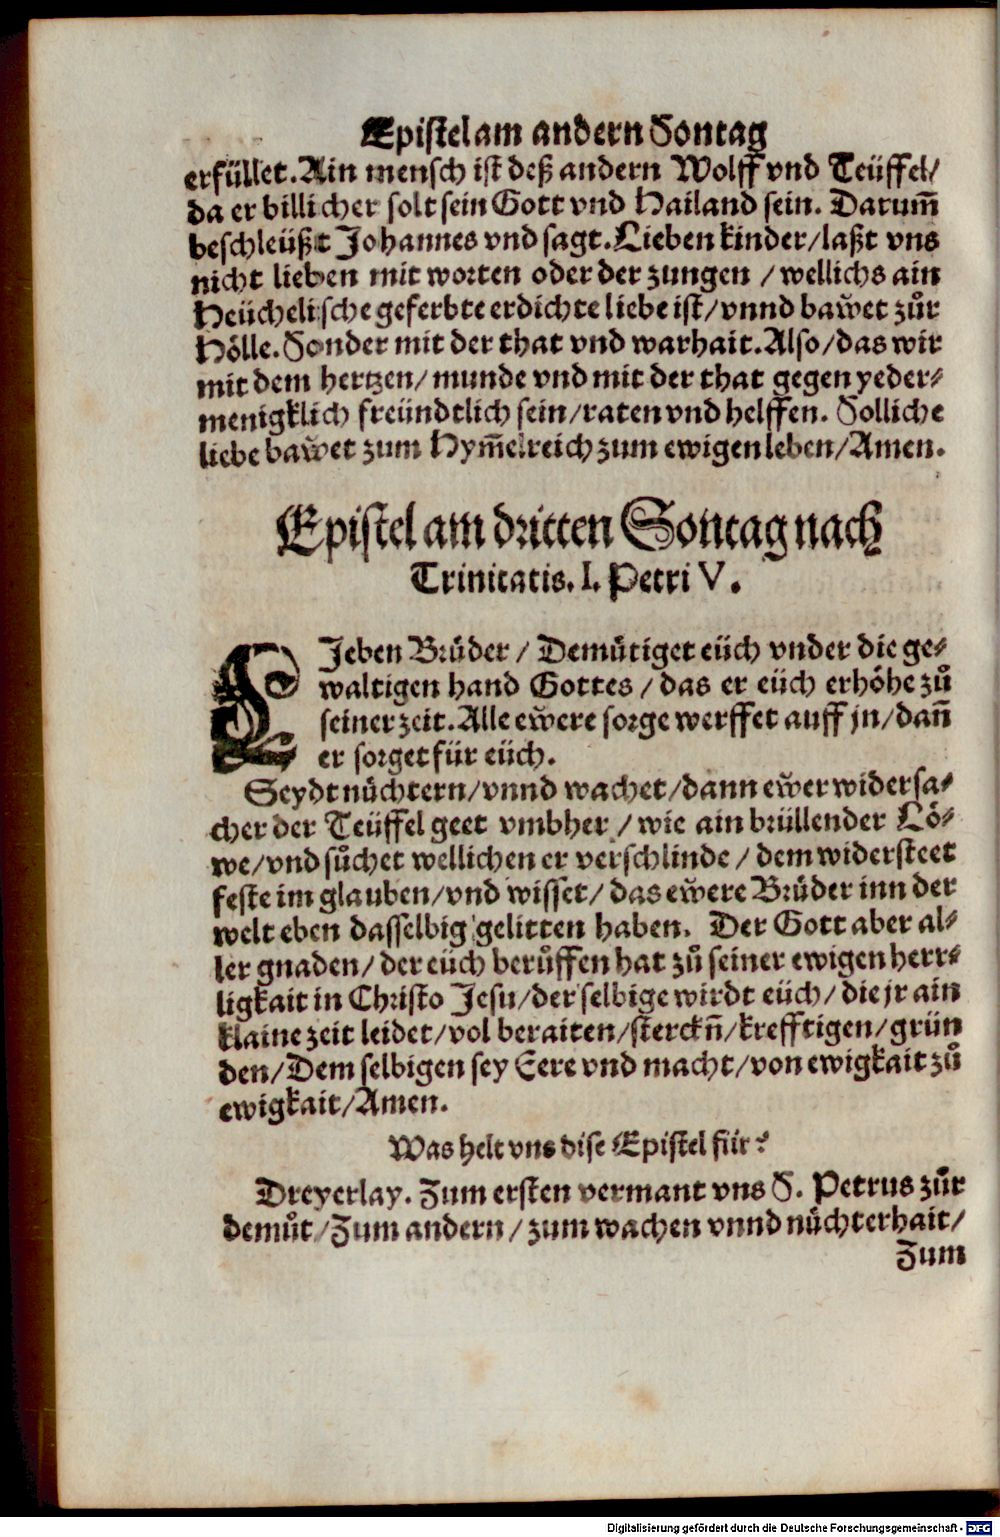 Epistel am andern Sontag
erfüllet. Ain mensch ist deß andern Wolff vnd Teüffel/
da er billicher solt sein Gott vnd Hailand sein. Darum̃
beschleüßt Johannes vnd sagt. Lieben kinder/laßt vns
nicht lieben mit worten oder der zungen /wellichs ain
Heüchelische geferbte erdichte liebe ist/vnnd bawet zůr
Hölle. Sonder mit der that vnd warhait. Also/das wir
mit dem hertzen/munde vnd mit der that gegen yeder-
menigklich freündtlich sein/raten vnd helffen. Solliche
liebe bawet zum Hym̃elreich zum ewigen leben/Amen.
Epistel am dritten Sontag nach
Trinitatis. I. Petri V.
LJeben Brüder / Demütiget eüch vnder die ge-
waltigen hand Gottes / das er eüch erhöhe zů
seiner zeit. Alle ewere sorge werffet auff jn/dañ
er sorget für eüch.
Seydt nüchtern/vnnd wachet/dann ewer widersa-
cher der Teüffel geet vmbher / wie ain brüllender Lö-
we/vnd sůchet wellichen er verschlinde / dem widersteet
feste im glauben/vnd wisset/ das ewere Brüder inn der
welt eben dasselbig gelitten haben. Der Gott aber al-
ler gnaden/ der eüch berůffen hat zů seiner ewigen herr-
ligkait in Christo Jesu/der selbige wirdt eüch/ die jr ain
klaine zeit leidet/vol beraiten/sterckñ/krefftigen/grün
den/Dem selbigen sey Eere vnd macht/von ewigkait zů
ewigkait/Amen.
Was helt vns dise Epistel für?
Dreyerlay. Zum ersten vermant vns S. Petrus zůr
demůt/Zum andern / zum wachen vnnd nüchterhait/
Zum
Digitalisierung gefördert durch die Deutsche Forschungsgemeinschaft - DFG